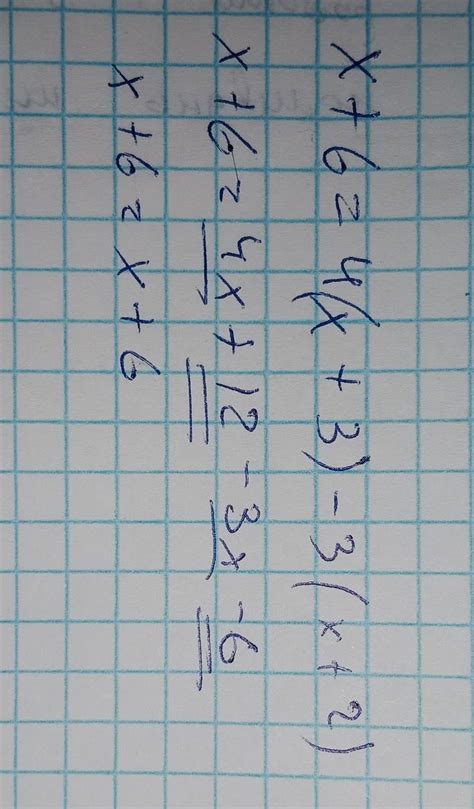 x + 6 = 4(x + 3) - 3(x + 2)
x + 6 = 4x + 12 - 3x - 6
x + 6 = x + 6